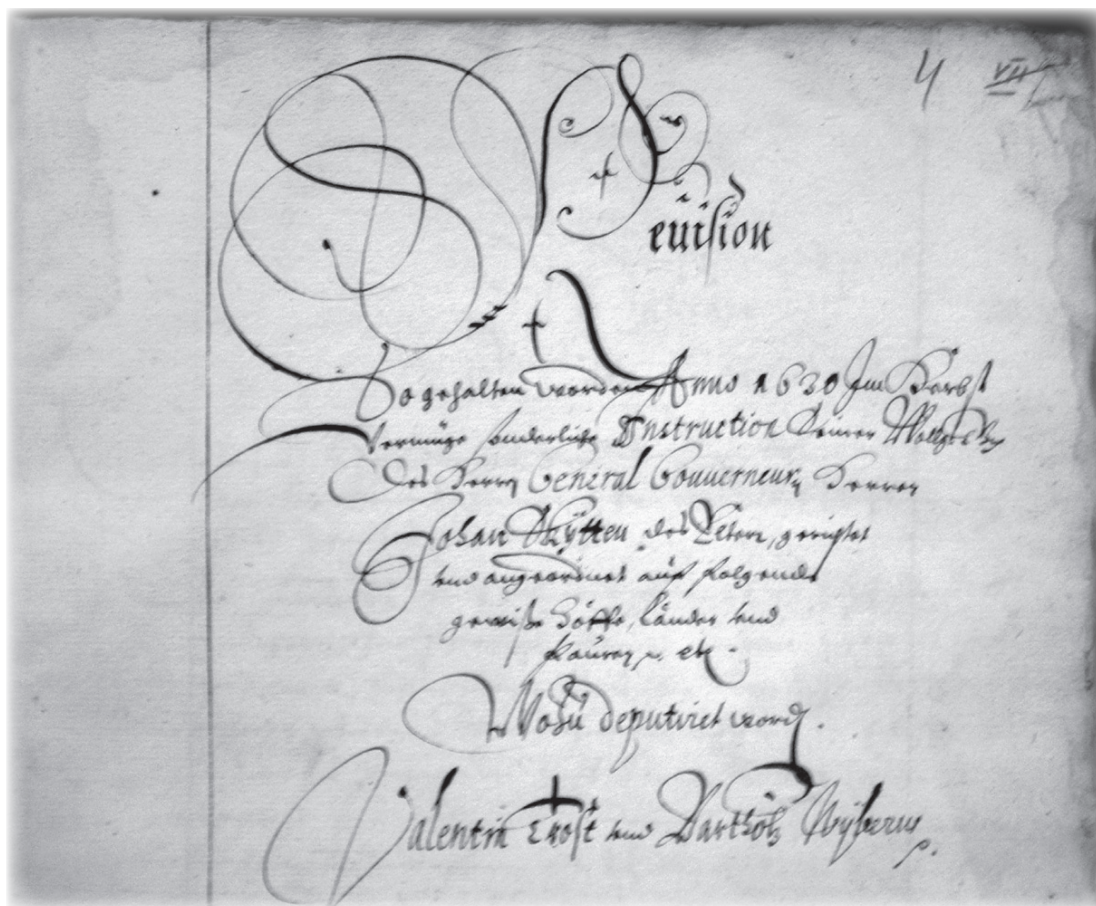 4 VII
Reuision
So gehalten worden Anno 1630 Im Herbst
Vermüge sonderliche Instruction Seiner
des Herrn General Gouuerneurn Herren
Johan Skytten des Eltern, gerichtet
vnd angeordnet auff folgende
gewisse Höffe, Länder vnd
Pauren, etc.
Wozu deputiret word.
Valentin Trost vnd Barthol.